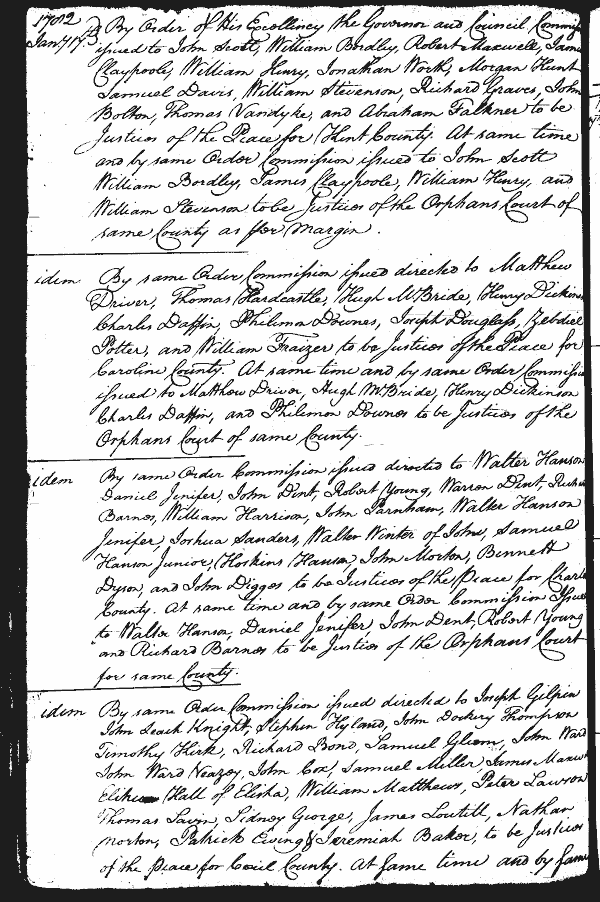 1782
Jany 17.th By Order of His Excellency the Governor and Council Commiss
issued to John Scott, William Bordley, Robert Maxwell, Jame
Claypoole, William Henry, Jonathan Worth, Morgan Hunt
Samuel Davis, William Stevenson, Richard Graves, John
Bolton, Thomas Vandyke, and Abraham Falkner to be
Justices of the Peace for Kent County. At same time
and by same Order Commission issued to John Scott
William Bordley, James Claypoole, William Henry, and
William Stevenson to be Justices of the Orphans Court of
same County as per Margin.
idem By same Order Commission issued directed to Matthew
Driver, Thomas Hardcastle, Hugh McBride, Henry Dickins
Charles Daffin, Philemon Downes, Joseph Douglass, Zebdiel
Potter, and William Fraizer to be Justices of the Peace for
Caroline County. At same time and by same Order Commissio
issued to Matthew Driver, Hugh McBride, Henry Dickinson
Charles Daffin, and Philemon Downes to be Justices of the
Orphans Court of same County.
idem By same Order Commission issued directed to Walter Hanson
Daniel Jenifer, John Dent, Robert Young, Warren Dent, Richa
Barnes, William Harrison, John Parnham, Walter Hanson
Jenifer, Joshua Sanders, Walter Winter of John, Samuel
Hanson Junior, Hoskins Hanson, John Morton, Bennett
Dyson, and John Digges to be Justices of the Peace for Charle
County. At same time and by same Order Commission Issued
to Walter Hanson, Daniel Jenifer, John Dent, Robert Young
and Richard Barnes to be Justices of the Orphans Court
for same County.
idem By same Order Commission issued directed to Joseph Gilpin
John Leach Knight, Stephen Hyland, John Dockery Thompson
Timothy Kirk, Richard Bond, Samuel Glenn, John Ward
John Ward Veazey, John Cox, Samuel Miller James Maxw
Elihu Hall of Elisha, William Matthews, Peter Lawson
Thomas Savin, Sidney George, James Loutitt, Nathan
Norton, Patrick Ewing & Jeremiah Baker, to be Justices
of the Peace for Cecil County. At same time and by same